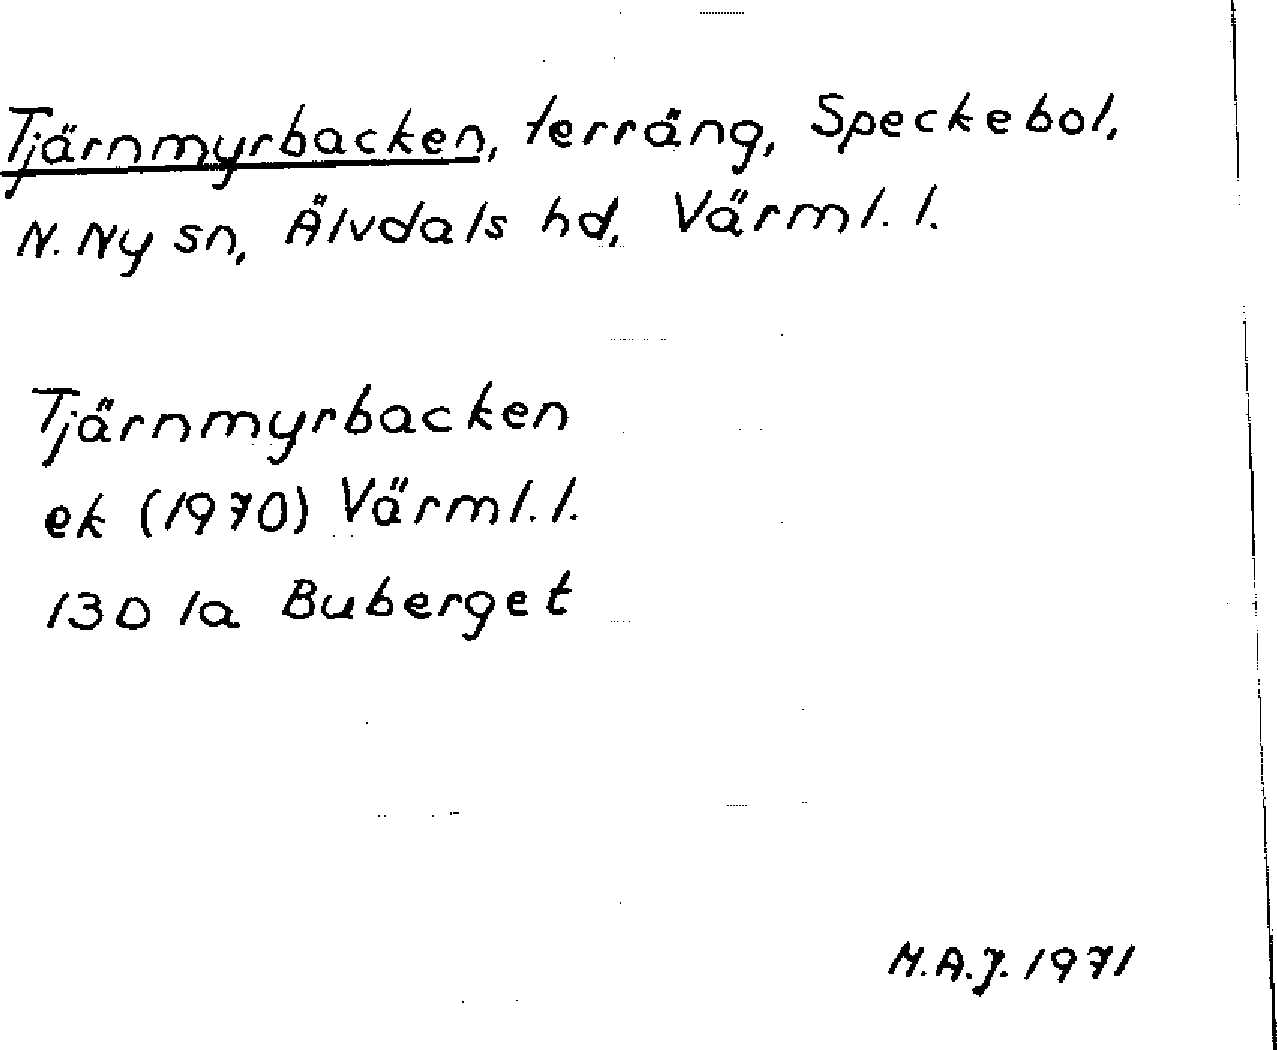 Tjärnmyrbacken, terräng, Speckebol,
N. Ny sn, Älvdals hd, Värml. l.
Tjärnmyrbacken
ek (1970) Värml. l.
13D 1a Buberget
M.A.J. 1971